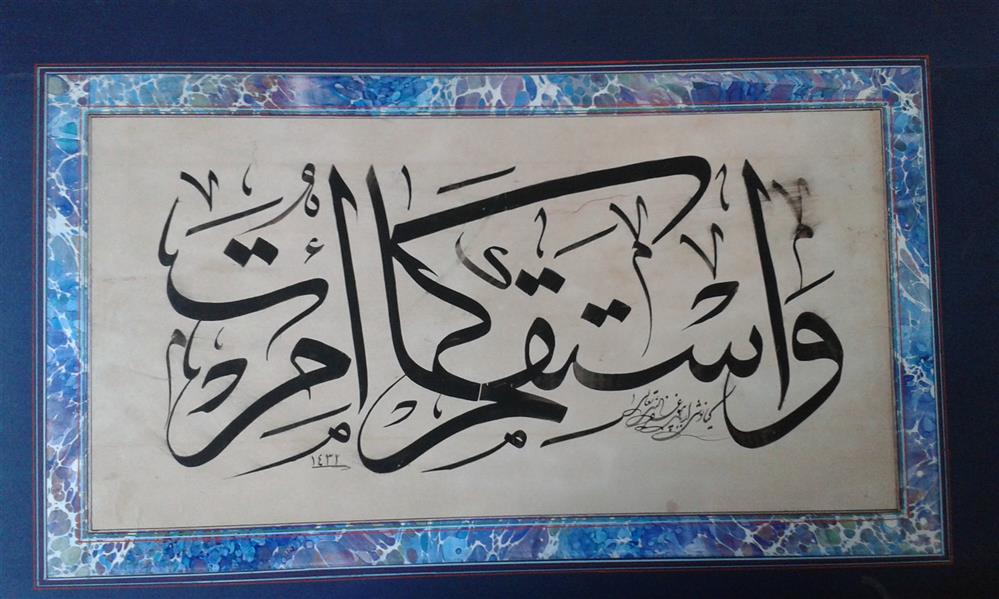 وَاسْتَقِمْ كَمَا اُمِرْتَ
١٤٣٢